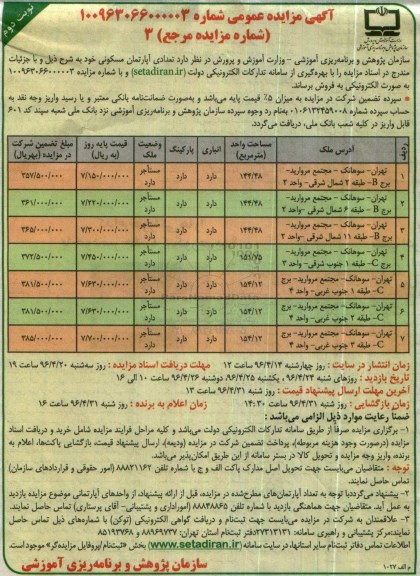 نوبت دوم
آگهی مزایده عمومی شماره ۱۰۰۹۶۳۰۶۶۰۰۰۰۰۳
(شماره مزایده مرجع) ۳
سازمان پژوهش و برنامه‌ریزی آموزشی - وزارت آموزش و پرورش در نظر دارد تعدادی آپارتمان مسکونی خود به شرح ذیل و با جزئیات
مندرج در اسناد مزایده را با بهره‌گیری از سامانه تدارکات الکترونیکی دولت (setadiran.ir) و با شماره مزایده ۱۰۰۹۶۳۰۶۶۰۰۰۰۰۳
به صورت الکترونیکی به فروش برساند.
سپرده تضمین شرکت در مزایده به میزان ۵٪ قیمت پایه می‌باشد و به‌صورت ضمانت‌نامه بانکی معتبر و یا رسید واریز وجه نقد به
حساب سپرده شماره ۰۱۰۶۱۳۲۴۵۹۰۰۸ به‌نام رد وجوه سپرده سازمان پژوهش و برنامه‌ریزی آموزشی نزد بانک ملی شعبه سپند کد ۶۰۱
قابل واریز در کلیه شعب بانک ملی، دریافت می‌گردد.
ردیف آدرس ملک مساحت واحد (مترمربع) انباری پارکینگ وضعیت ملک قیمت پایه روز (به ریال) مبلغ تضمین شرکت در مزایده (به‌ریال)
۱ تهران- سوهانک - مجتمع مروارید- برج B- طبقه ۲ شمال شرقی- واحد ۲ ۱۴۴/۴۸ دارد دارد مستأجر دارد ۷/۱۵۰/۰۰۰/۰۰۰ ۳۵۷/۵۰۰/۰۰۰
۲ تهران- سوهانک - مجتمع مروارید- برج B- طبقه ۶ شمال شرقی- واحد ۲ ۱۴۴/۴۸ دارد دارد مستأجر دارد ۷/۲۲۰/۰۰۰/۰۰۰ ۳۶۱/۰۰۰/۰۰۰
۳ تهران- سوهانک - مجتمع مروارید- برج B- طبقه ۱۱ شمال شرقی- واحد ۲ ۱۴۴/۴۸ دارد دارد مستأجر دارد ۷/۳۰۰/۰۰۰/۰۰۰ ۳۶۵/۰۰۰/۰۰۰
۴ تهران- سوهانک- مجتمع مروارید- برج C- طبقه ۱ جنوب شرقی- واحد ۳ ۱۵۱/۷۵ دارد دارد مستأجر دارد ۷/۴۵۰/۰۰۰/۰۰۰ ۳۷۲/۵۰۰/۰۰۰
۵ تهران- سوهانک- مجتمع مروارید- برج C- طبقه ۱ جنوب غربی- واحد ۴ ۱۵۴/۱۲ دارد دارد مستأجر دارد ۷/۶۳۰/۰۰۰/۰۰۰ ۳۸۱/۵۰۰/۰۰۰
۶ تهران- سوهانک- مجتمع مروارید- برج C- طبقه ۲ جنوب غربی- واحد ۴ ۱۵۴/۱۲ دارد دارد مستأجر دارد ۷/۶۳۰/۰۰۰/۰۰۰ ۳۸۱/۵۰۰/۰۰۰
۷ تهران- سوهانک- مجتمع مروارید- برج C- طبقه ۴ جنوب غربی- واحد ۴ ۱۵۴/۱۲ دارد دارد مستأجر دارد ۷/۷۰۰/۰۰۰/۰۰۰ ۳۸۵/۰۰۰/۰۰۰
زمان انتشار در سایت: روز چهارشنبه ۹۶/۴/۱۴ ساعت ۱۲ مهلت دریافت اسناد مزایده: روز سه‌شنبه ۹۶/۴/۲۰ ساعت ۱۹
تاریخ بازدید: روزهای شنبه ۹۶/۴/۲۴، یکشنبه ۹۶/۴/۲۵، دوشنبه ۹۶/۴/۲۶ ساعت ۱۰ الی ۱۶
آخرین مهلت ارسال پیشنهاد قیمت: روز شنبه ۹۶/۴/۳۱ ساعت ۱۳
زمان بازگشایی: روز شنبه ۹۶/۴/۳۱ ساعت ۱۴:۳۰ زمان اعلام به برنده: روز شنبه ۹۶/۴/۳۱ ساعت ۱۶
ضمناً رعایت موارد ذیل الزامی می‌باشد:
۱- برگزاری مزایده صرفاً از طریق سامانه تدارکات الکترونیکی دولت می‌باشد و کلیه مراحل فرایند مزایده شامل خرید و دریافت اسناد
مزایده (درصورت وجود هزینه مربوطه)، پرداخت تضمین شرکت در مزایده (ودیعه)، ارسال پیشنهاد قیمت، بازگشایی پاکت‌ها، اعلام به
برنده، واریز وجه مزایده و تحویل کالا در بستر سامانه از این طریق امکان‌پذیر می‌باشد.
توجه: متقاضیان می‌بایست جهت تحویل اصل مدارک پاکت الف و ج با شماره تلفن ۸۸۸۳۱۱۶۲ (امور حقوقی و قراردادهای سازمان)
تماس حاصل نمایند.
۲- پیشنهاد می‌گردد با توجه به تعداد آپارتمان‌های مطرح‌شده در مزایده، قبل از ارائه پیشنهاد از واحدهای آپارتمانی موضوع مزایده بازدید
به عمل آید. متقاضیان جهت هماهنگی بازدید با شماره تلفن ۸۸۸۳۸۸۶۵ (امورادرای و پشتیبانی - آقای پرستاری) تماس حاصل نمایند.
۳- علاقمندان به شرکت در مزایده می‌بایست جهت ثبت‌نام و دریافت گواهی الکترونیکی (توکن) با شماره‌های ذیل تماس حاصل
نمایند: مرکز پشتیبانی و راهبری سامانه: ۲۷۳۱۳۱۳۱ دفتر ثبت‌نام استان تهران: ۸۸۹۶۹۷۳۷ و ۸۵۱۹۳۷۶۸
اطلاعات تماس دفاتر ثبت‌نام سایر استانها، در سایت سامانه (www.setadiran.ir) بخش «ثبت‌نام/پروفایل مزایده‌گر» موجود است.
م الف ۱۰۲۷ سازمان پژوهش و برنامه‌ریزی آموزشی